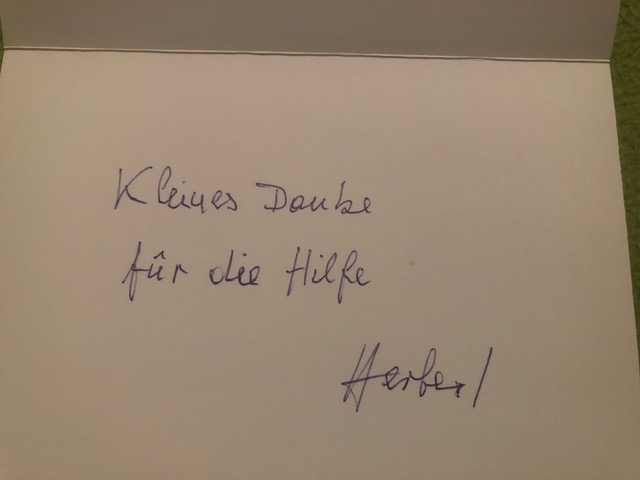 Kleines Danke
für die Hilfe
Herbert